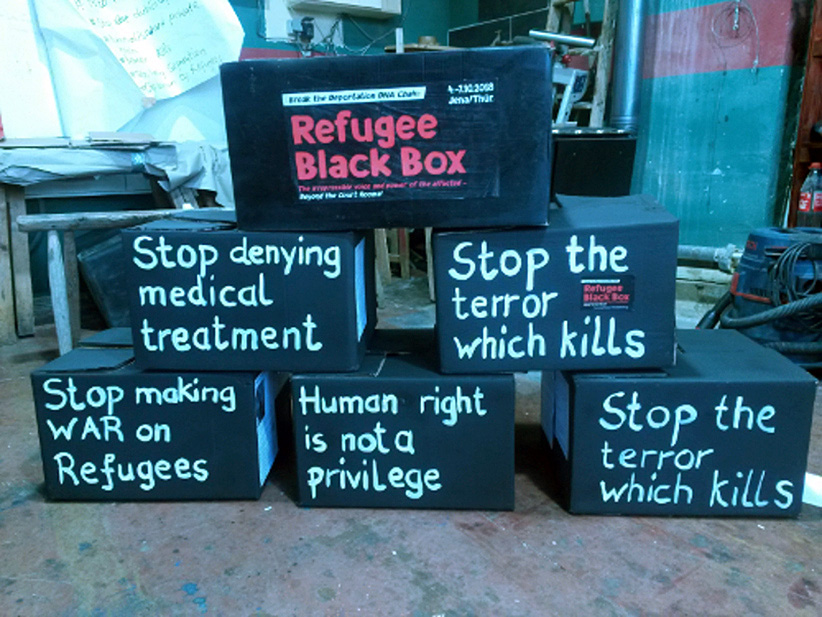 Break the Deportation DNA Chain!
4.-7.10.2018
Jena/Thür.
Refugee
Black Box
The irrepressible voice and power of the affected –
Beyond the Court Rooms!
Stop denying
medical
treatment
Stop the
terror
which kills
Refugee
Black Box
Stop making
WAR on
Refugees
Human right
is not a
privilege
Stop the
terror
which kills